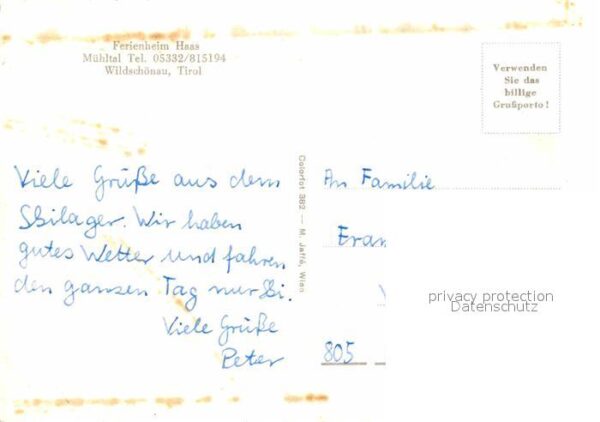 Ferienheim Haas
Mühltal Tel. 05332/815194
Wildschönau, Tirol
Verwenden
Sie das
billige
Grußporto!
Viele Grüße aus dem
Skilager. Wir haben
gutes Wetter und fahren
den ganzen Tag nur Ski.
Viele Grüße
Peter
Colorfot 382 — M. Jaffé, Wien
An Familie
805
privacy protection
Datenschutz